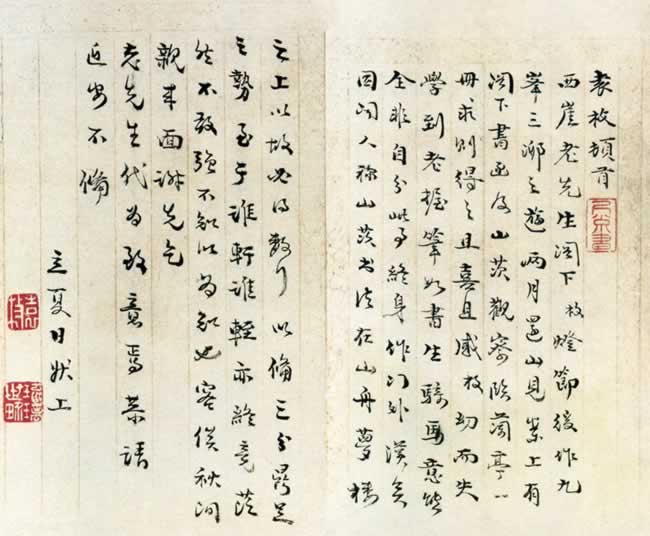 袁枚頓首
西崖老先生閣下枚燈節後作九
峯三泖之遊兩月還山見案上有
閣下書函及山茨觀察臨蘭亭一
冊求則得之且喜且感枚幼而失
學到老握筆如書生騎馬意態
全非自分此事終身作門外漢矣
因聞人称山茨书法在山舟夢樓
之上以故必得數行以備三分鼎足
之勢至于誰軒誰輊亦終竟茫
然不敢強不知以為知也容俟秋間
親来面謝先乞
老先生代為致意焉恭請
近安不備
立夏日狀上
袁枚